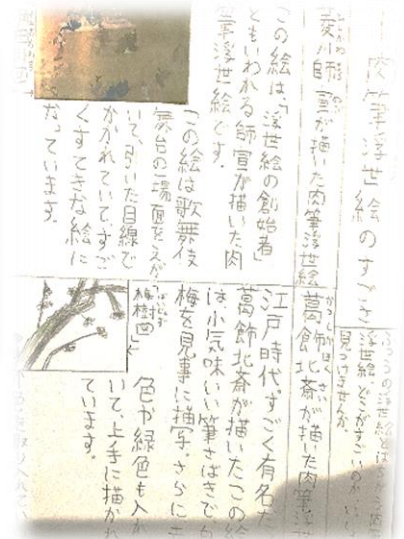 肉筆浮世絵のすごさ
ふつうの浮世絵とはちがう肉筆
浮世絵。どこがすごいのかいっし
見つけませんか。
菱川師宣が描いた肉筆浮世絵
この絵は、「浮世絵の創始者」
ともいわれる師宣が描いた肉
筆浮世絵です。
この絵は歌舞伎
舞台の一場面をえが
いて、引いた目線で
かかれていて、すご
くすてきな絵に
なっています。
葛飾北斎が描いた肉筆浮世
かつしかほくさい
江戸時代すごく有名だ
葛飾北斎が描いたこの絵
は小気味いい筆さばきで、白
梅を見事に描写。さらに
梅樹図」
ばいじゅず
色や緑色も入れ
いて、上手に描かれ
ています。